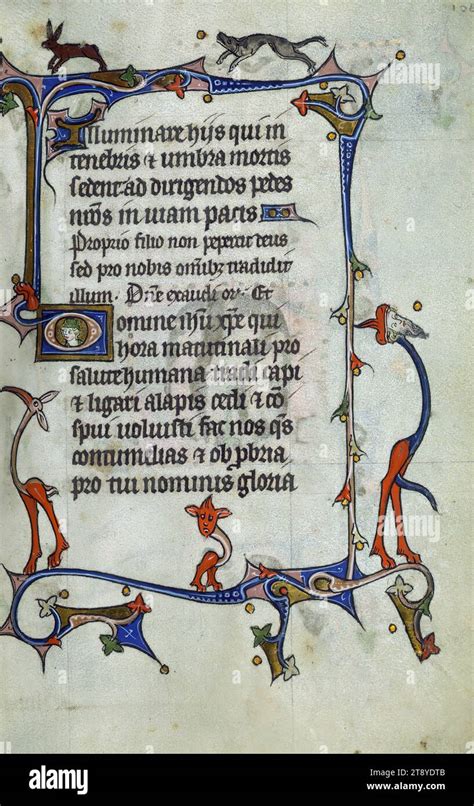 Illuminare hijs qui in
tenebris & umbra mortis
sedent ad dirigendos pedes
nr̄os in uiam pacis
Proprio filio non pepercit deus
sed pro nobis om̄ibꝫ tradidit
illum. Dn̄e exaudi or. Et
Domine ihu xp̄e qui
hora matutinali pro
salute humana tradi capi
& ligari alapis cedi & cō
spui uoluisti fac nos qs
contumelias & obp̄bria
pro tui nominis gloria
alamy
Image ID: 2T8YDTB
www.alamy.com